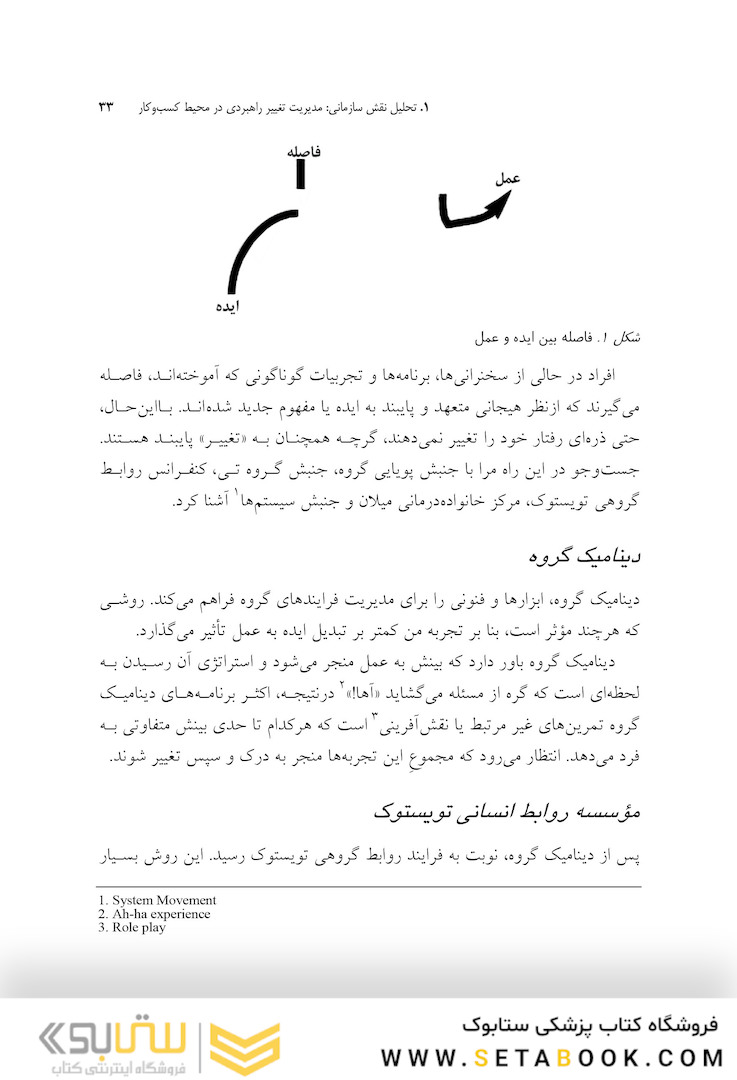 ۱. تحلیل نقش سازمانی: مدیریت تغییر راهبردی در محیط کسب‌وکار ۳۳
فاصله
عمل
ایده
شکل ۱. فاصله بین ایده و عمل
افراد در حالی از سخنرانی‌ها، برنامه‌ها و تجربیات گوناگونی که آموخته‌انـد، فاصـله
می‌گیرند که ازنظر هیجانی متعهد و پایبند به ایده یا مفهوم جدید شده‌انـد. بـااین‌حـال،
حتی ذره‌ای رفتار خود را تغییر نمی‌دهند، گرچـه همچنـان بـه «تغییـر» پایبنـد هسـتند.
جست‌وجو در این راه مرا با جنبش پویایی گروه، جنبش گـروه تـی، کنفـرانس روابـط
گروهی تویستوک، مرکز خانواده‌درمانی میلان و جنبش سیستم‌ها۱ آشنا کرد.
دینامیک گروه
دینامیک گروه، ابزارها و فنونی را برای مدیریت فرایندهای گروه فراهم می‌کند. روشـی
که هرچند مؤثر است، بنا بر تجربه من کمتر بر تبدیل ایده به عمل تأثیر می‌گذارد.
دینامیک گروه باور دارد که بینش به عمل منجر می‌شود و استراتژی آن رسـیدن بـه
لحظه‌ای است که گره از مسئله می‌گشاید «آها!»۲ درنتیجـه، اکثـر برنامـه‌هـای دینامیـک
گروه تمرین‌های غیر مرتبط یا نقش‌آفرینی۳ است که هرکدام تا حدی بینش متفاوتی بـه
فرد می‌دهد. انتظار می‌رود که مجموعِ این تجربه‌ها منجر به درک و سپس تغییر شوند.
مؤسسه روابط انسانی تویستوک
پس از دینامیک گروه، نوبت به فرایند روابط گروهی تویستوک رسید. این روش بسـیار
1. System Movement
2. Ah-ha experience
3. Role play
فروشگاه کتاب پزشکی ستابوک
WWW.SETABOOK.COM
ستابوک
فروشگاه اینترنتی کتاب